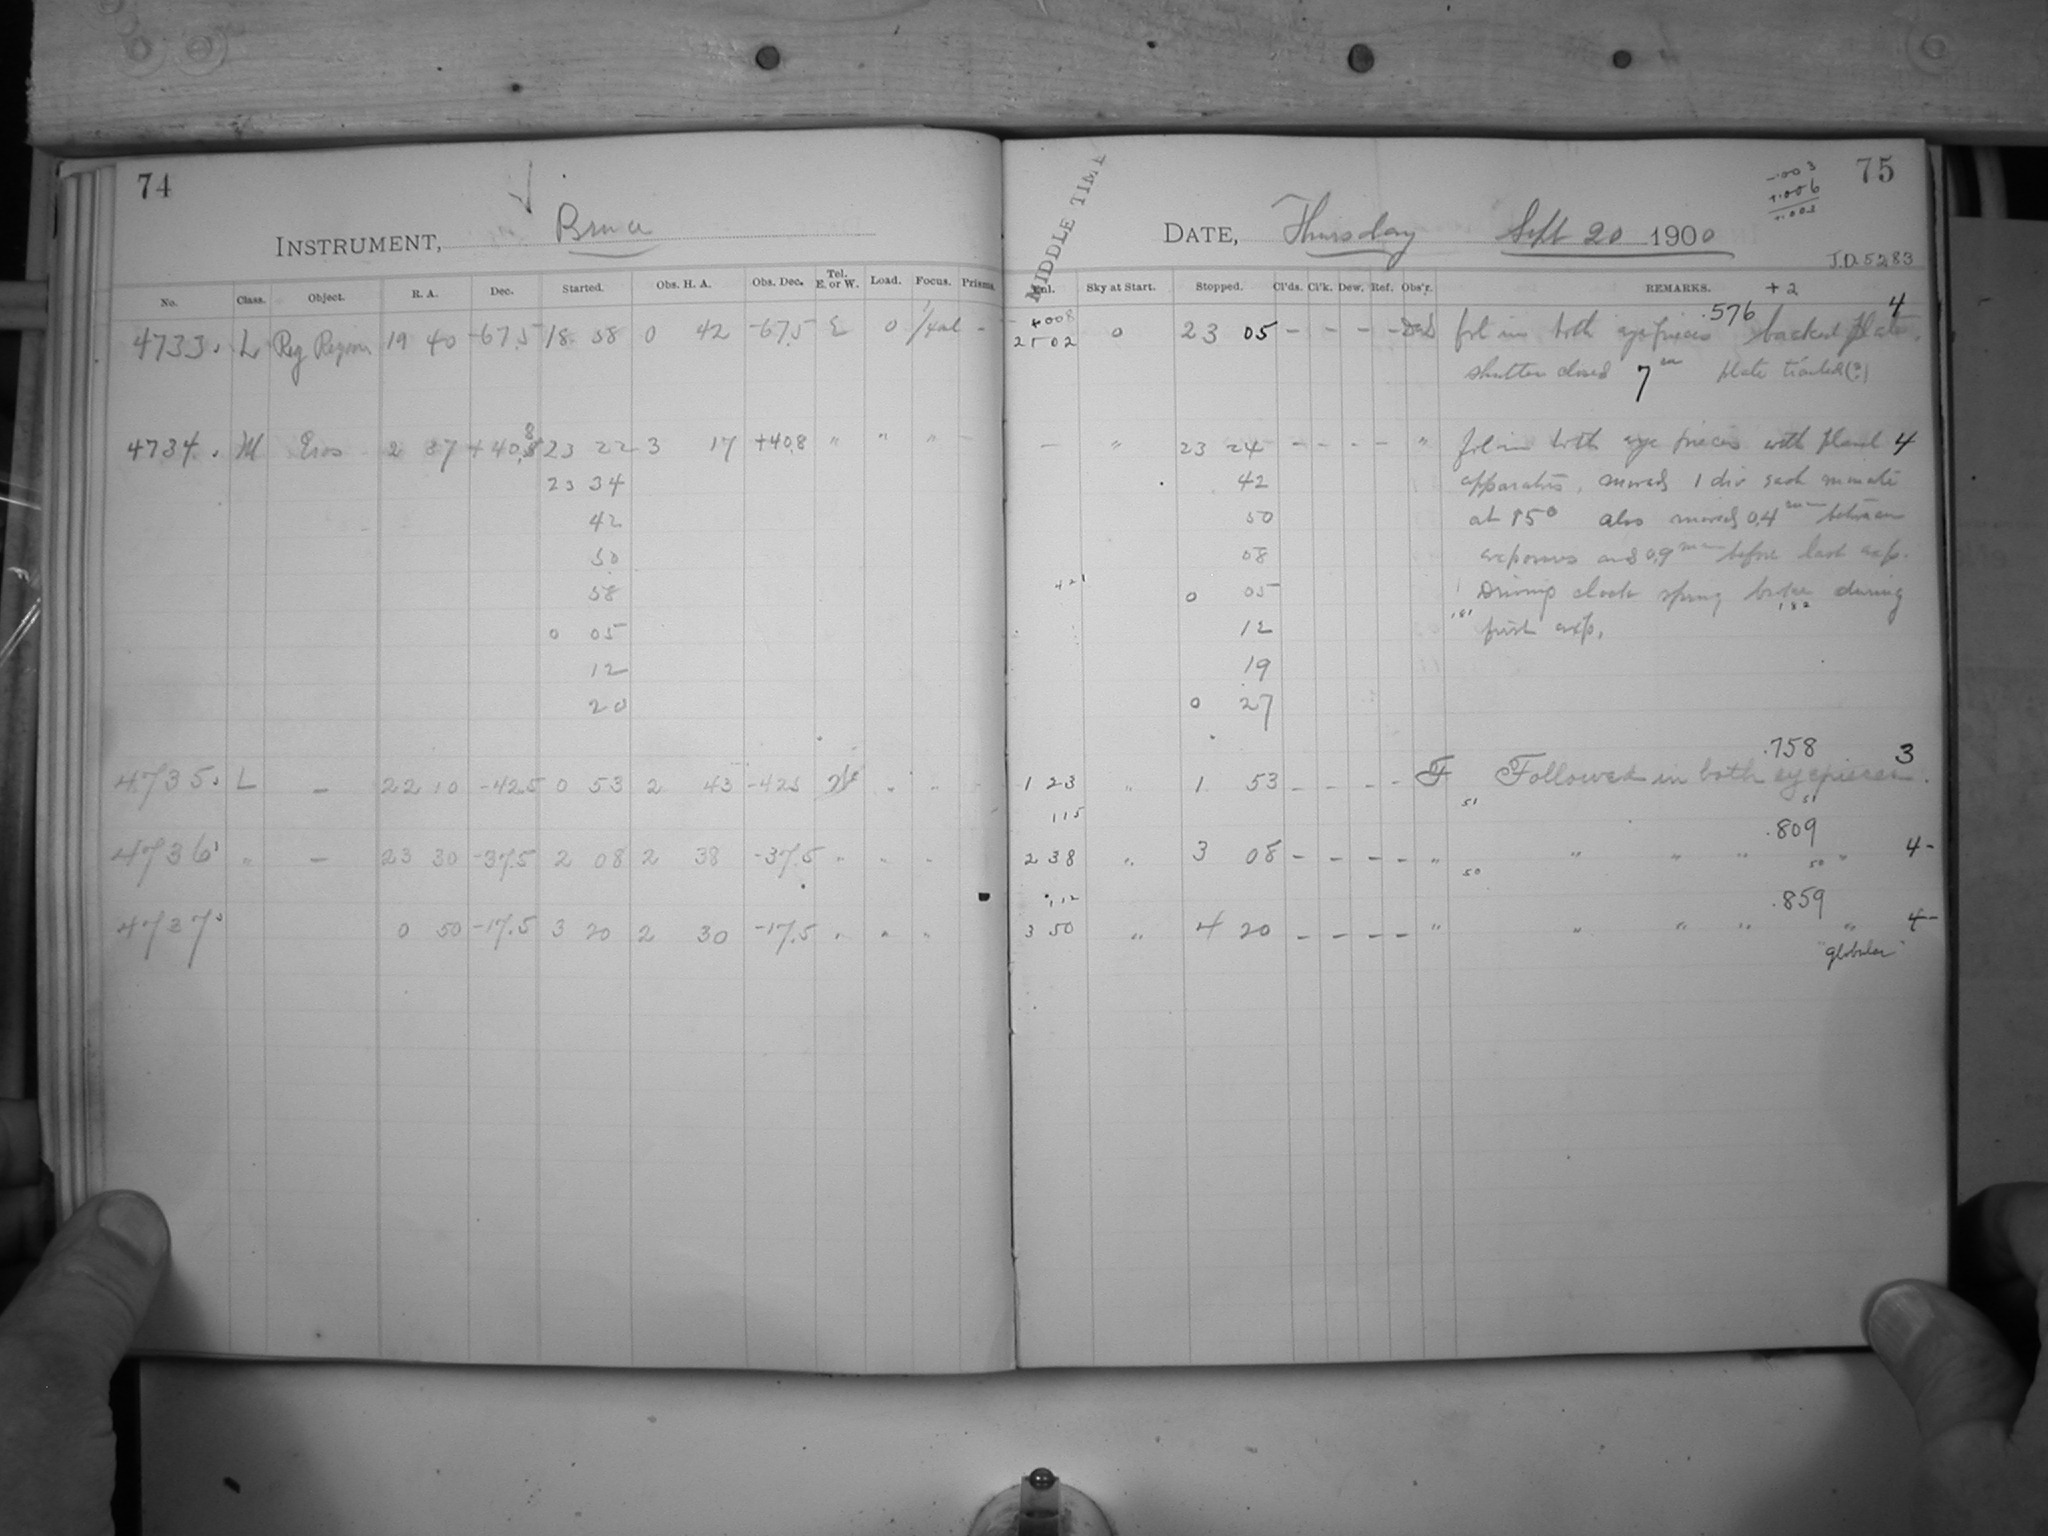 74
INSTRUMENT, Bruce
No. Class. Object. R. A. Dec. Started. Obs. H. A. Obs. Dec. Tel. E. or W. Load. Focus. Prisms.
4733. L Reg Region 19 40 -67.5 18 58 0 42 -67.5 E 0 -
4734. M Eros 2 37 +40.8 23 22 3 17 +40.8 " " " -
23 34
42
50
58
0 05
12
20
4735. L - 22 10 -42.5 0 53 2 43 -42.5 W " " -
4736. " - 23 30 -37.5 2 08 2 38 -37.5 " " "
4737. 0 50 -17.5 3 20 2 30 -17.5 " " "
75
-.003
+.006
+.003
MIDDLE TIME
DATE, Thursday Sept 20 1900
J.D. 5283
Sky at Start. Stopped. Cl'ds. Cl'k. Dew. Ref. Obs'r. REMARKS. +2
+008 .576 4
21 02 0 23 05 - - - - fol in both eyepieces backed plate.
shutter closed 7 m plate tilted(?)
- " 23 24 - - - - " fol in both eye pieces with planet 4
42 apparatus, moved 1 div each minute
50 at 85° also moved 0.4 mm between
08 exposures and 0.9 mm before last exp.
0 05 Driving clock spring broke during
12 first exp.
19
0 27
.758 3
1 23 " 1 53 - - - - F Followed in both eyepieces.
51 51
115 .809
2 38 " 3 08 - - - - " " " " " 4-
50 50
112 .859
3 50 " 4 20 - - - - " " " " " 4-
"globular"